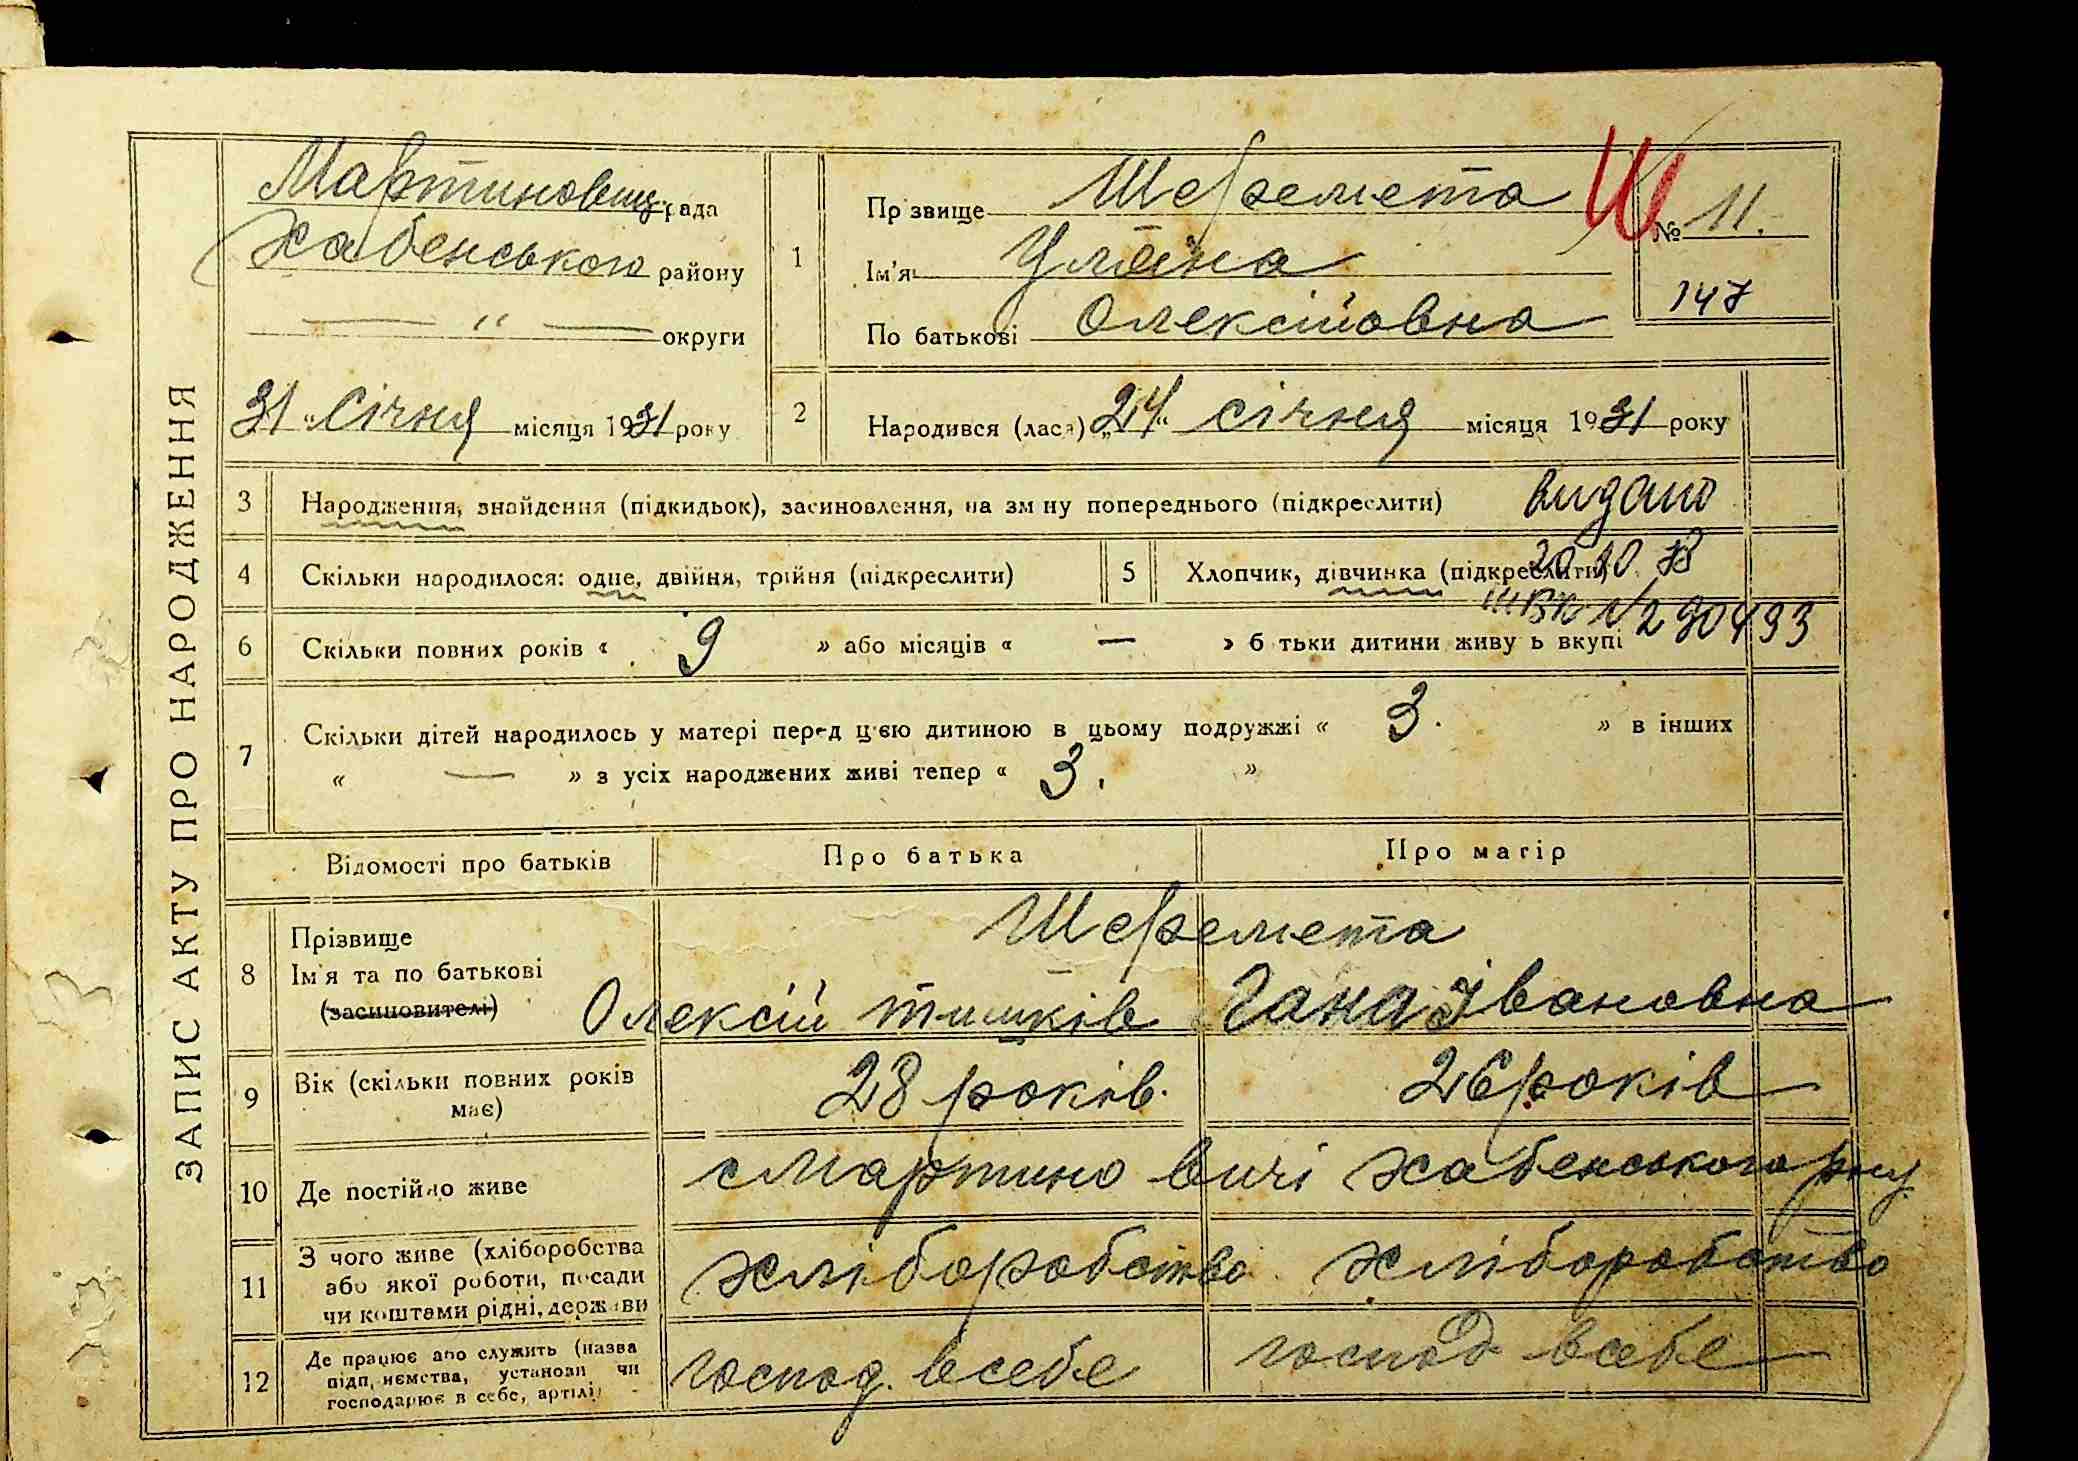 ЗАПИС АКТУ ПРО НАРОДЖЕННЯ
Мартинович. рада
Хабенського району
— " — округи
31 "Січня місяця 1931 року
1
Прізвище Шеремета
Ім'я Уляна
По батькові Олексійовна
Ш
№ 11.
147
2
Народився (лася) „24" січня місяця 1931 року
3 Народження, знайдення (підкидьок), засиновлення, на зм ну попереднього (підкреслити) видано
4 Скільки народилося: одне, двійня, трійня (підкреслити)
5 Хлопчик, дівчинка (підкреслити) 20 10
№ 290493
6 Скільки повних років « 9 » або місяців « — » б тьки дитини живу ь вкупі
7 Скільки дітей народилось у матері перед цією дитиною в цьому подружжі « 3. » в інших
« — » з усіх народжених живі тепер « 3. »
Відомості про батьків Про батька Про матір
8 Прізвище Шеремета
Ім'я та по батькові
(засиновителі) Олексій Тишків Гана Івановна
9 Вік (скільки повних років має) 28 років. 26 років
10 Де постійно живе с Мартиновичі Хабенського р-ну
11 З чого живе (хліборобства
або якої роботи, посади
чи коштами рідні, держави
хліборобство хліборобство
12 Де працює або служить (назва
підп, иємства, установи чи
господарює в себе, артілі)
господ. всебе господ всебе